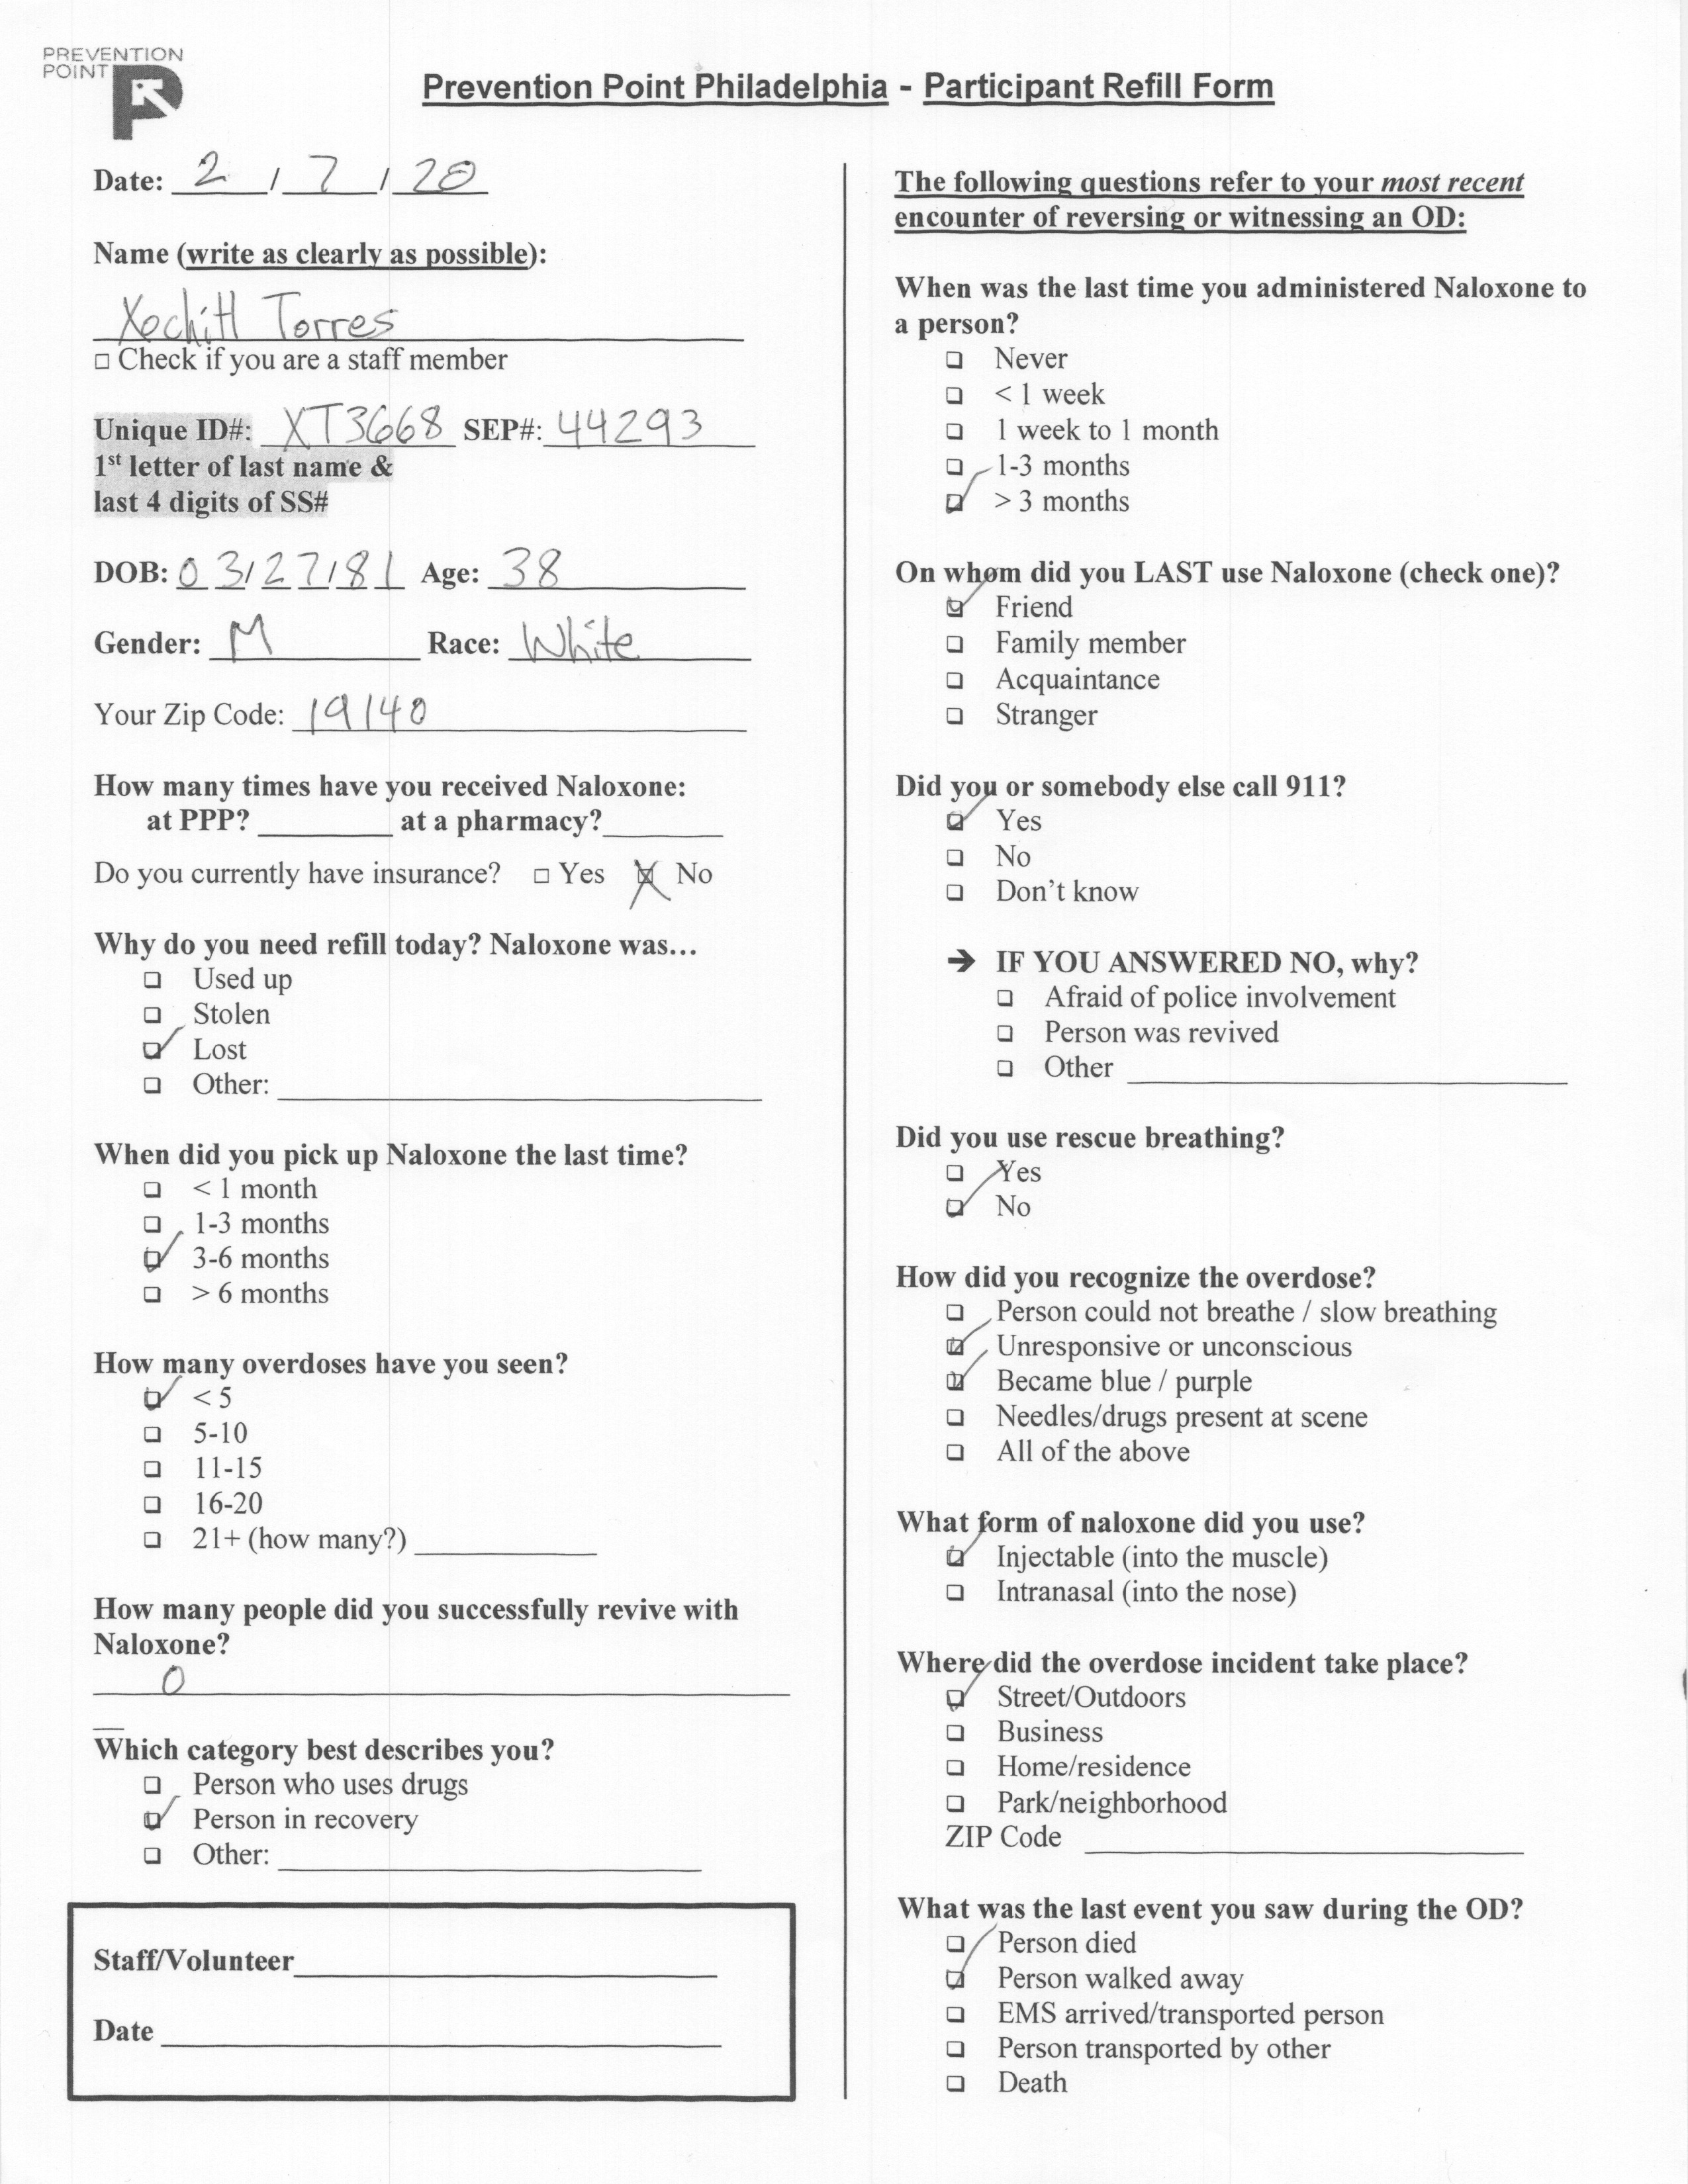 PREVENTION
POINT
Prevention Point Philadelphia - Participant Refill Form
Date: 2 / 7 / 20
Name (write as clearly as possible):
Xochitl Torres
□ Check if you are a staff member
Unique ID#: XT3668 SEP#: 44293
1st letter of last name &
last 4 digits of SS#
DOB: 03/27/81 Age: 38
Gender: M Race: White
Your Zip Code: 19140
How many times have you received Naloxone:
at PPP? ________ at a pharmacy? ________
Do you currently have insurance? □ Yes ☒ No
Why do you need refill today? Naloxone was...
□ Used up
□ Stolen
☑ Lost
□ Other: ________
When did you pick up Naloxone the last time?
□ < 1 month
□ 1-3 months
☑ 3-6 months
□ > 6 months
How many overdoses have you seen?
☑ < 5
□ 5-10
□ 11-15
□ 16-20
□ 21+ (how many?) ________
How many people did you successfully revive with
Naloxone?
0
Which category best describes you?
□ Person who uses drugs
☑ Person in recovery
□ Other: ________
Staff/Volunteer ________
Date ________
The following questions refer to your most recent
encounter of reversing or witnessing an OD:
When was the last time you administered Naloxone to
a person?
□ Never
□ < 1 week
□ 1 week to 1 month
□ 1-3 months
☑ > 3 months
On whom did you LAST use Naloxone (check one)?
☑ Friend
□ Family member
□ Acquaintance
□ Stranger
Did you or somebody else call 911?
☑ Yes
□ No
□ Don't know
➔ IF YOU ANSWERED NO, why?
□ Afraid of police involvement
□ Person was revived
□ Other ________
Did you use rescue breathing?
□ Yes
☑ No
How did you recognize the overdose?
□ Person could not breathe / slow breathing
☑ Unresponsive or unconscious
☑ Became blue / purple
□ Needles/drugs present at scene
□ All of the above
What form of naloxone did you use?
☑ Injectable (into the muscle)
□ Intranasal (into the nose)
Where did the overdose incident take place?
☑ Street/Outdoors
□ Business
□ Home/residence
□ Park/neighborhood
ZIP Code ________
What was the last event you saw during the OD?
□ Person died
☑ Person walked away
□ EMS arrived/transported person
□ Person transported by other
□ Death